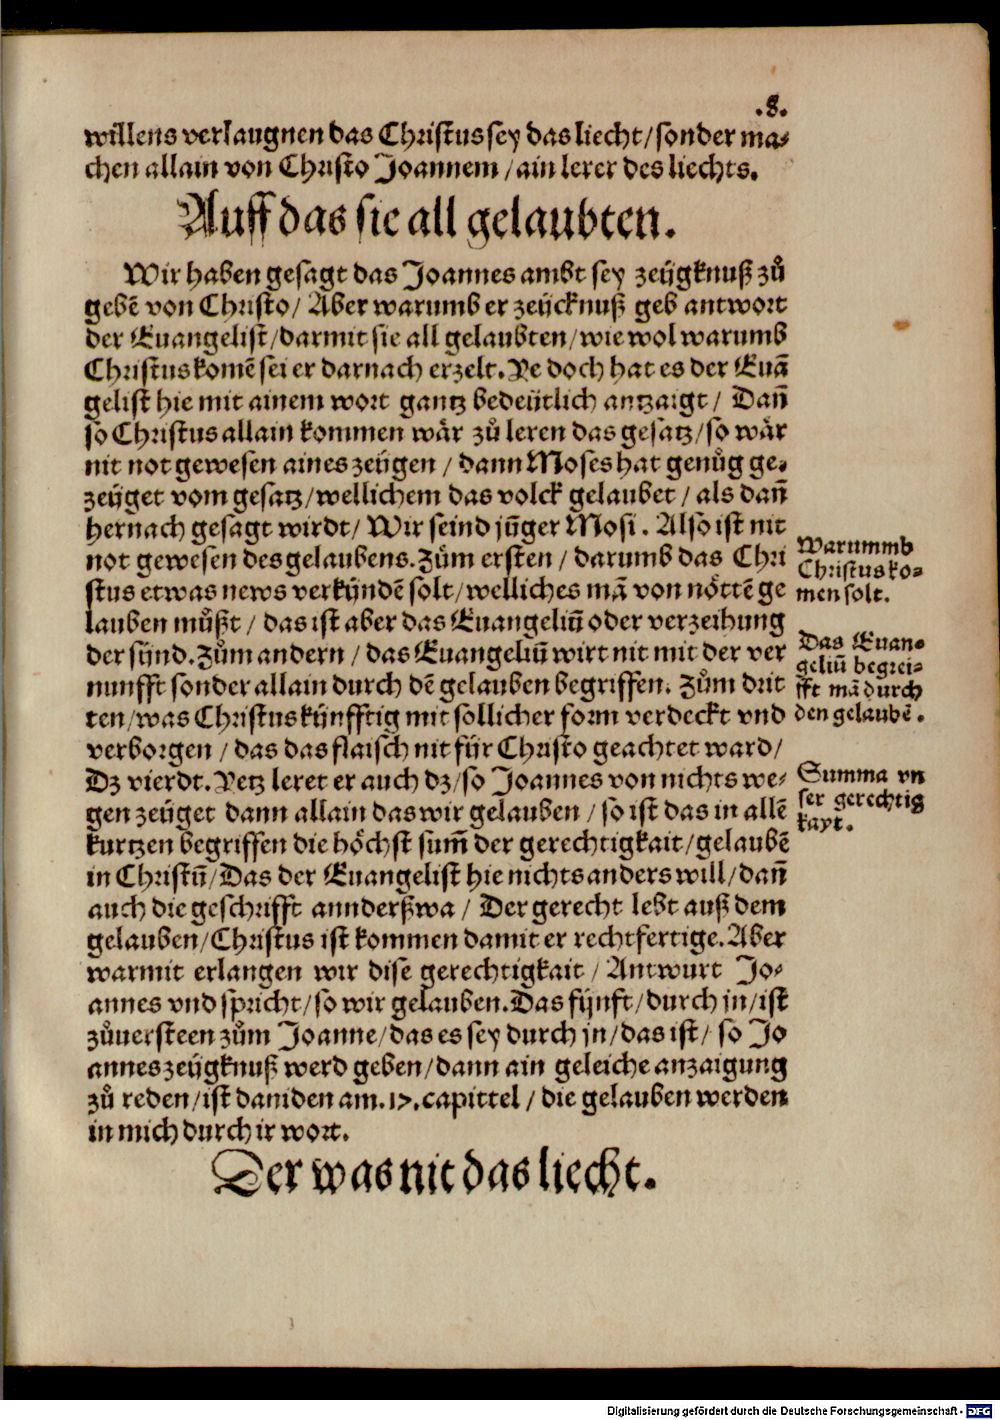 .8.
willens verlaugnen das Christus sey das liecht/sonder ma⸗
chen allain von Christo Joannem/ain lerer des liechts.
Auff das sie all gelaubten.
Wir haben gesagt das Joannes ambt sey zeügknuß zů
gebē von Christo/ Aber warumb er zeücknuß geb antwort
der Euangelist/darmit sie all gelaubten/wie wol warumb
Christus komē sei er darnach erzelt. Ye doch hat es der Euā
gelist hie mit ainem wort gantz bedeütlich antzaigt/ Dañ
so Christus allain kommen wår zů leren das gesatz/so wår
nit not gewesen aines zeügen/ dann Moses hat genůg ge⸗
zeüget vom gesatz/wellichem das volck gelaubet/ als dañ
hernach gesagt wirdt/ Wir seind jūger Mosi. Also ist nit
not gewesen des gelaubens. Zům ersten/ darumb das Chri
stus etwas news verkündē solt/welliches mā von nöttē ge
lauben můßt/ das ist aber das Euangeliū oder verzeihung
der sünd. Zům andern/ das Euangeliū wirt nit mit der ver
nunfft sonder allain durch dē gelauben begriffen. Zům drit
ten/was Christus künfftig mit sollicher form verdeckt vnd
verborgen/ das das flaisch nit für Christo geachtet ward/
Dz vierdt. Yetz leret er auch dz/so Joannes von nichts we⸗
gen zeüget dann allain das wir gelauben/ so ist das in allē
kurtzen begriffen die höchst sum̄ der gerechtigkait/gelaubē
in Christū/Das der Euangelist hie nichts anders will/dañ
auch die geschrifft annderßwa/ Der gerecht lebt auß dem
gelauben/Christus ist kommen damit er rechtfertige. Aber
warmit erlangen wir dise gerechtigkait/ Antwurt Jo⸗
annes vnd spricht/so wir gelauben. Das fünft/durch jn/ist
zůuersteen zům Joanne/das es sey durch jn/das ist/ so Jo
annes zeügknuß werd geben/dann ain geleiche anzaigung
zů reden/ist daniden am .17. capittel/ die gelauben werden
in mich durch ir wort.
Der was nit das liecht.
Warummb
Christus ko⸗
men solt.
Das Euan⸗
geliū begrei⸗
fft mā durch
den gelaubē.
Summa vn
ser gerechtig
kayt.
Digitalisierung gefördert durch die Deutsche Forschungsgemeinschaft - DFG